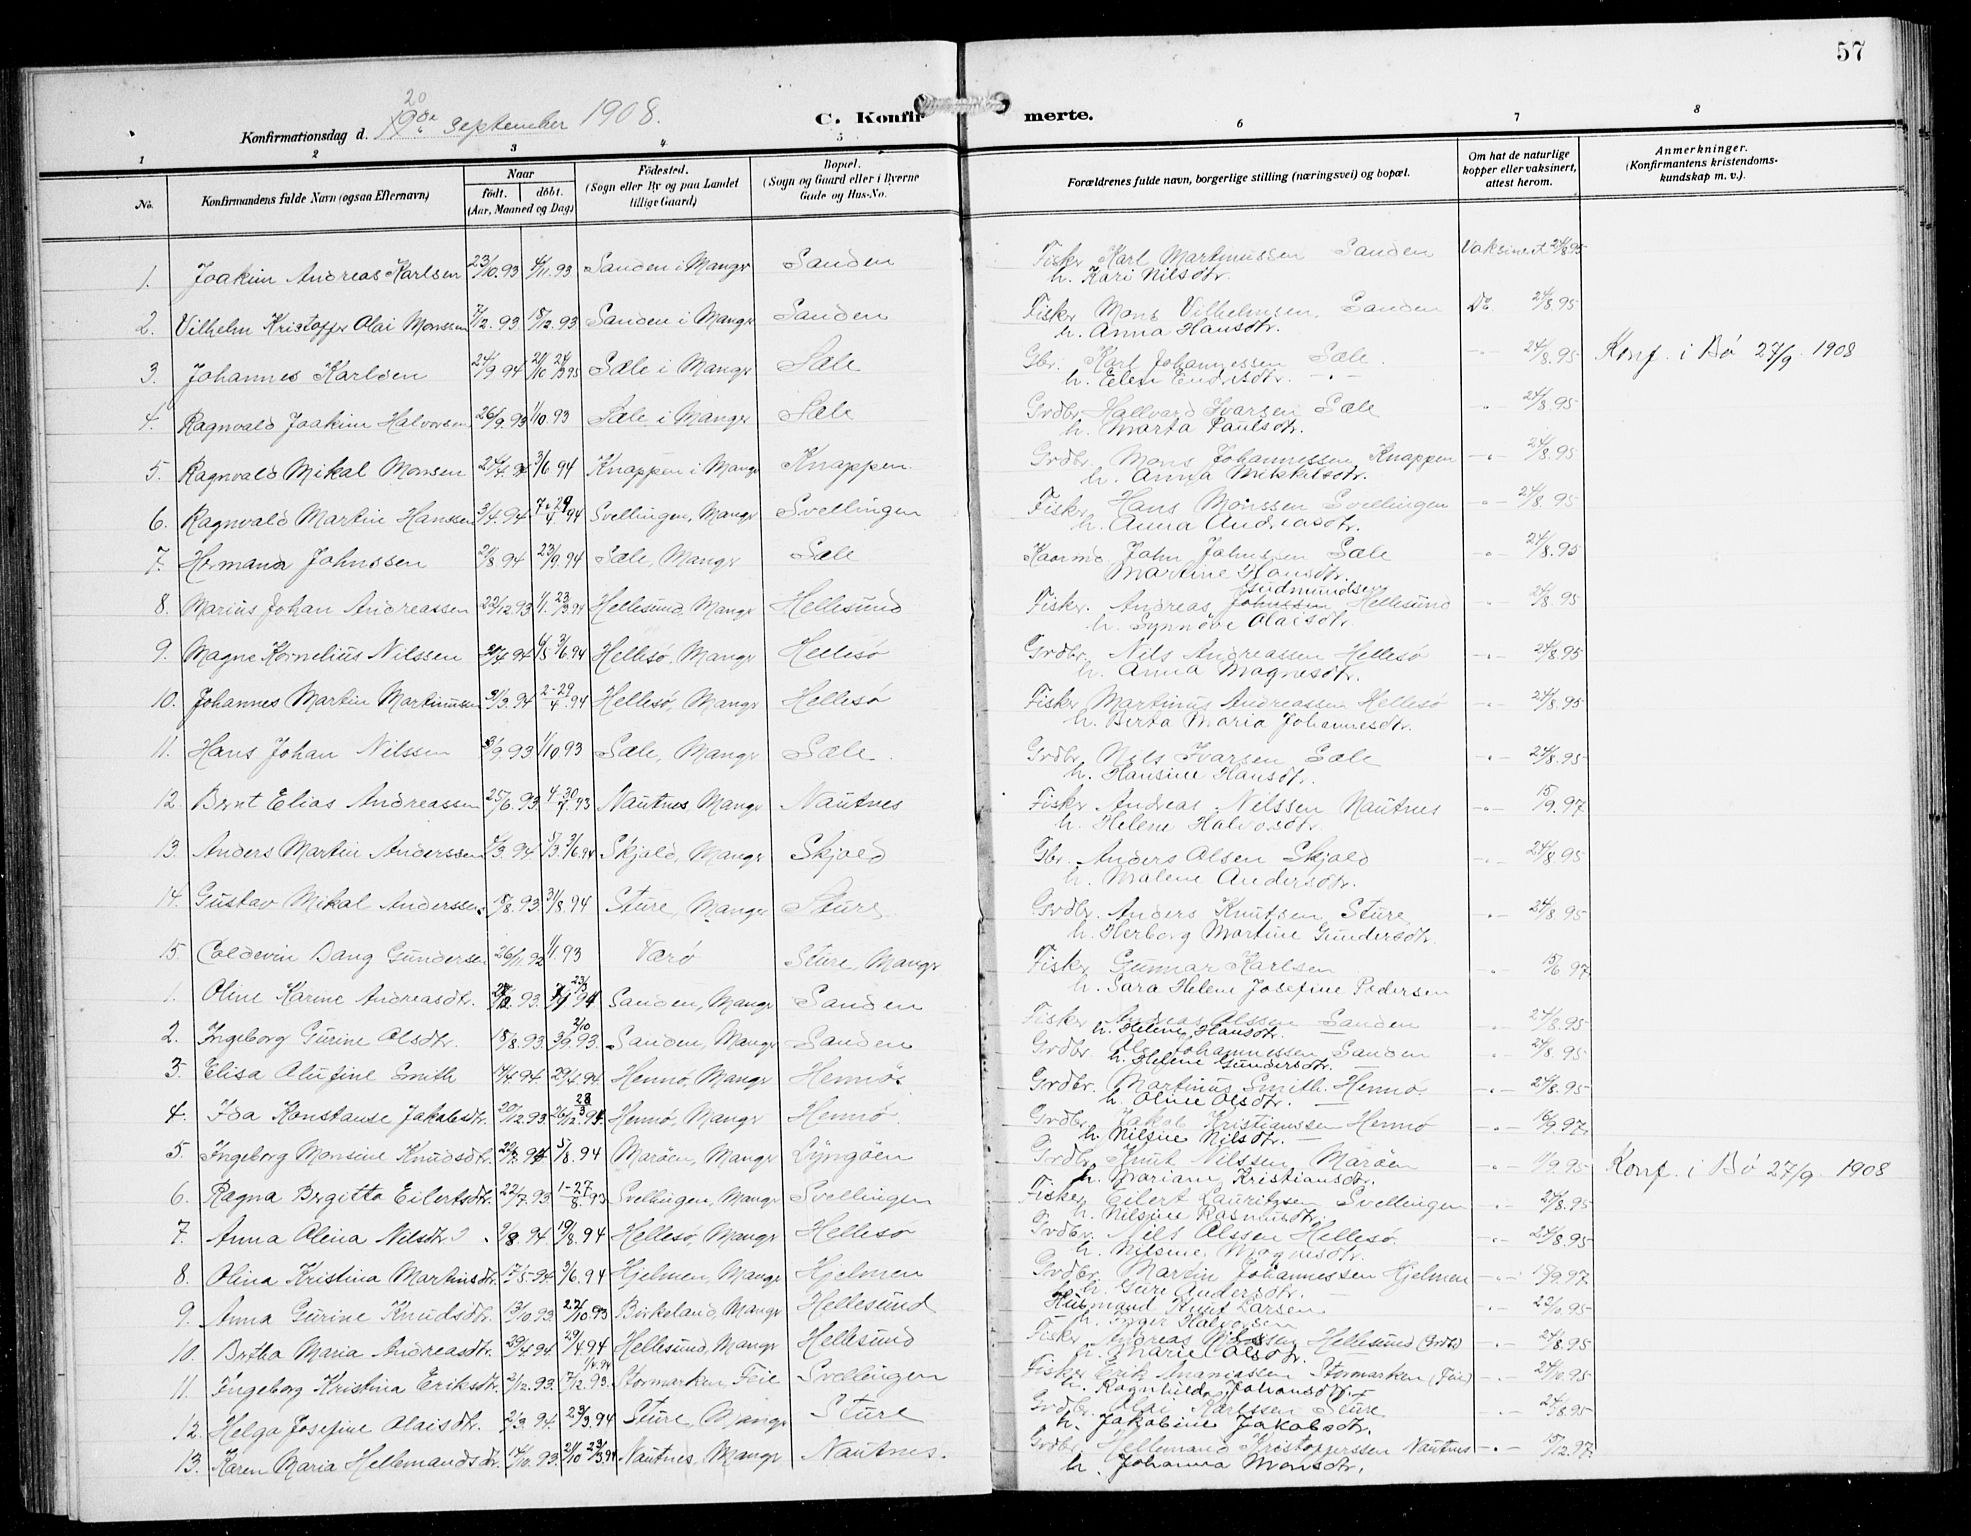 57
Konfirmationsdag d. 20 september 1908.
C. Konfirmerte.
1 2 3 4 5 6 7 8
No. Konfirmandens fulde Navn (ogsaa Efternavn) Naar født. døbt. (Aar, Maaned og Dag) Fødested. (Sogn eller By og paa Landet tillige Gaard) Bopæl. (Sogn og Gaard eller i Byerne Gade og Hus-No. Forældrenes fulde navn, borgerlige stilling (næringsvei) og bopæl. Om hat de naturlige kopper eller vaksinert, attest herom. Anmerkninger. (Konfirmantens kristendomskundskap m. v.).
1. Joakim Andreas Karlsen 23/10.93 /11.93 Sanden i Manger Sanden Fisker Karl Martinussen Sanden Vaksinert 24/8 95
h. Kari Nilsdtr.
2. Vilhelm Kristoffer Olai Monssen 7/12.93 /12.93 Sanden i Manger Sanden Fisker Mons Vilhelmsen, Sanden Do 24/8.95
h. Anna Hansdtr.
3. Johannes Karlsen 24/9 94 Sæle i Manger Sæle Gbr. Karl Johannessen Sæle. -"- 24/8.95 Konf. i Bø 27/9. 1908
h. Elen Endresdtr. -"-
4. Ragnvald Joakim Halvorsen 26/9 93 1/10.93 Sæle i Manger Sæle Grdbr. Hallvard Ivarsen Sæle " 24/8.95
h. Marta Paulsdtr.
5. Ragnvald Mikal Monsen 3/6 94 Knappen i Manger Knappen. Grdbr. Mons Johannessen Knappen -"- 24/8.95
h. Anna Mikkelsdtr.
6. Ragnvald Martin Hanssen 3/4.94 7-29/4 94 Svellingen, Manger Svellingen Fisker Hans Monssen Svellingen -"- 24/8.95
h. Anna Andreasdtr.
7. Hermand Johnssen 21/8 94 23/9.94 Sæle, Manger Sæle John Johnssen Sæle -"- 24/8.95
Martine Hansdtr.
8. Marius Johan Andreassen 22/12 93 Hellesund, Manger Hellesund Fisker. Andreas Johnssen Gudmundsen Hellesund -"- 24/8.95
h. Synnøve Olaisdtr.
9. Magne Kornelius Nilssen 3/6.94 Hellesø, Manger Hellesø Grdbr. Nils Andreassen Hellesø -"- 24/8.95
h. Anna Magnesdtr.
10. Johannes Martin Martinussen 31/3.94 2-29/4.94 Hellesø, Manger Hellesø Fisker Martinus Andreassen Hellesø -"- 24/8.95
h. Berta Maria Johannesdtr.
11. Hans Johan Nilssen /9.93 1/10 93 Sæle, Manger Sæle. Grdbr. Nils Ivarsen Sæle -"- 24/8.95
h. Hansine Hansdtr.
12. Bernt Elias Andreassen 25/6.93 Nautnes, Manger Nautnes Fisker Andreas Nilssen Nautnes -"- 15/9.97
h. Helene Halvorsdtr.
13. Anders Martin Anderssen /3.94 Skjold, Manger Skjold Gbr. Anders Olsen Skjold -"- 24/8.95
h. Malene Andersdtr.
14. Gustav Mikal Anderssen. /8.93 Sture, Manger Sture Grdbr. Anders Knutsen Sture -"- 24/8.95
h. Herborg Martine Gundersdtr.
15. Coldevin Dang Gundersen 26/11.92 1/1.93 Værø Sture, Manger Fisker Gunnar Karlsen " 15/6 97
h. Sara Helene Josefine Pedersen
1. Oline Karine Andreasdtr. Sanden, Manger Sanden Fisker Andreas Olssen Sanden -"- 24/8.95
h. Helene Hansdtr.
2. Ingeborg Gurine Olsdtr. 18/8.93. Sanden, Manger Sanden Grdbr. Ole Johannessen Sanden " 24/8.95
h. Helene Gundersdtr.
3. Elisa Olufine Smith 29/4.94. Hennø, Manger Hennø. Grdbr. Martinus Smith. Hennø. -"- 24/8.95
h. Oline Olsdtr.
4. Ida Konstanse Jakobsdtr. 20/12.93. Hennø, Manger Hennø. Grdbr. Jakob Kristianssen Hennø -"- 16/9.97.
h. Nilsine Nilsdtr.
5. Ingeborg Monsine Knudsdtr. 5/8.94 Marøen, Manger Lyngøen Grdbr. Knut Nilssen Marøen -"- 11/9.95 Konf. i Bø 27/9. 1908
h. Mariam Kristiansdtr.
6. Ragna Brgitta Eilertsdtr. 22/7.93 1-27/8.93 Svellingen, Manger Svellingen Fisker Eilert Lauritzsen Svellingen -"- 24/8.95
h. Nilsine Rasmusdtr.
7. Anna Olena Nilsdtr. /8.94. 19/8.94 Hellesø, Manger Hellesø Grdbr. Nils Olssen Hellesø. -"- 24/8.95
h. Nilsine Magnesdtr.
8. Olina Kristina Martinsdtr. 3/6.94 Hjelmen, Manger Hjelmen Grdbr. Martin Johannessen Hjelmen -"- 15/9.97.
h. Gure Andersdtr.
9. Anna Gurine Knudsdtr. 13/10.93. 22/10.93 Birkeland, Manger Hellesund Husmand Knut Larsen -"- 22/10.95
h. Inger Halvorsen
10. Brtha Maria Andreasdtr. 29/4.94 Hellesund, Manger Hellesund Fisker Andreas Nilssen Hellesund -"- 24/8.95
h. Marie Olsdtr.
11. Ingeborg Kristina Eriksdtr. 2/12.93. 17/12.93. Stormarken, Feie Svellingen Fisker Erik Ananiassen Stormarken (Feie) -"- 24/10.95
h. Ragnhilda Johansdtr.
12. Helga Josefine Olaisdtr. 2/3.94. 23/3.94 Sture, Manger Sture Grdbr. Olai Karlssen Sture " 24/8.95
h. Jakobine Jakobsdtr.
13. Karen Maria Hellemandsdtr. 14/10.93. Nautnes, Manger Nautnes. Grdbr. Hellemand Kristofferssen Nautnes -"- 15/12.97.
h. Johanna Monsdtr.